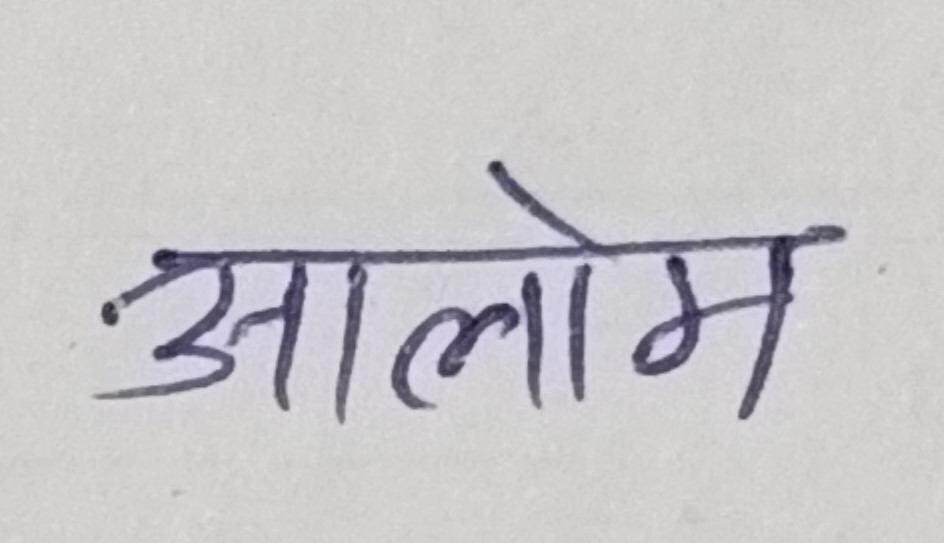 आलोम